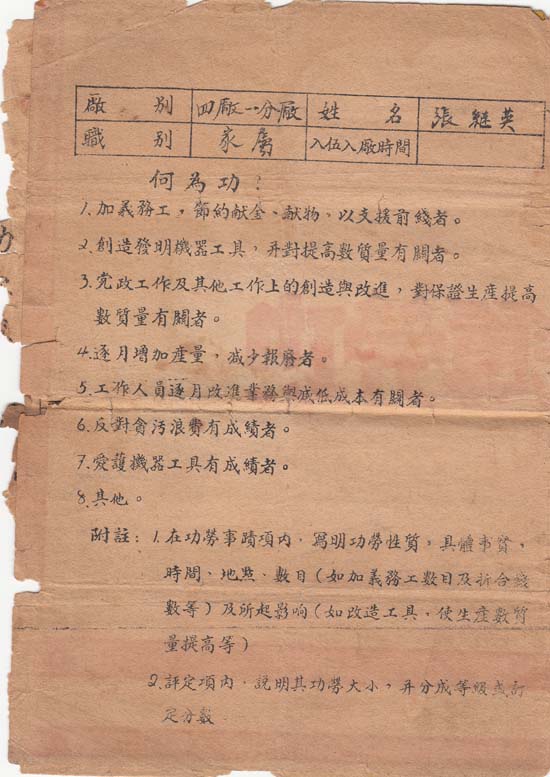 廠別 四廠一分廠 姓名 張継英
職別 家屬 入伍入廠時間
何為功？
1.加義務工，節約献金、献物、以支援前綫者。
2.創造發明機器工具，并對提高數質量有關者。
3.党政工作及其他工作上的創造與改進，對保證生産提高
數質量有關者。
4.逐月增加産量，减少報廢者。
5.工作人員逐月改進業務與减低成本有關者。
6.反對貪污浪費有成績者。
7.愛護機器工具有成績者。
8.其他。
附註：1.在功勞事蹟項内，寫明功勞性質，具體事實，
時間、地點、數目（如加義務工數目及折合錢
數等）及所起影响（如改造工具，使生産數質
量提高等）
2.評定項内，說明其功勞大小，并分成等級或訂
定分數